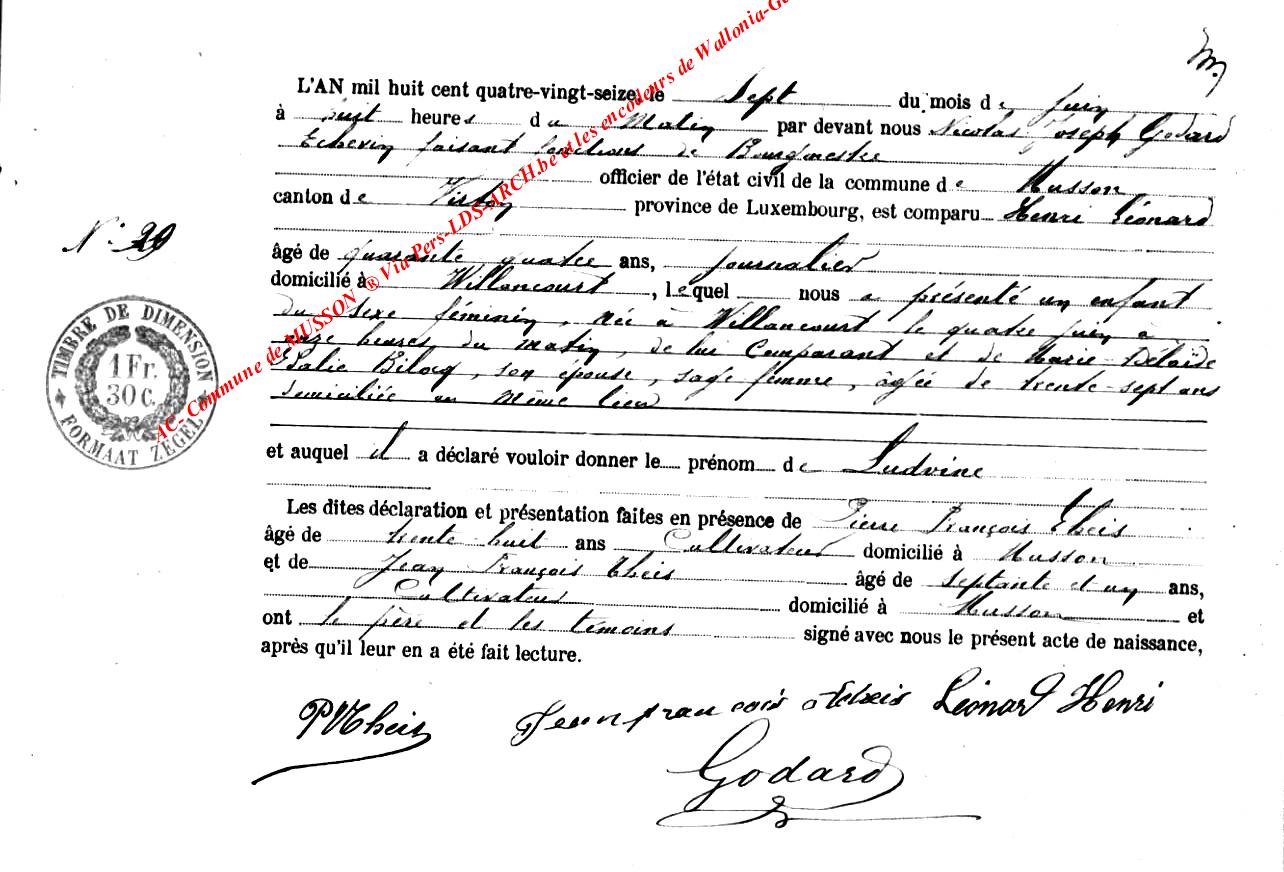 L'AN mil huit cent quatre-vingt-seize, le Sept du mois de juin
à huit heures du Matin par devant nous Nicolas Joseph Godard
Echevin faisant fonctions de Bourgmestre
officier de l'état civil de la commune de Musson,
canton de Virton province de Luxembourg, est comparu Henri Léonard
N° 29
âgé de quarante quatre ans, journalier
domicilié à Willancourt, lequel nous a présenté un enfant
du sexe féminin, née à Willancourt le quatre juin à
onze heures du matin, de lui Comparant et de Marie
, son épouse, sage femme, âgée de trente-sept ans
domiciliée au même lieu
et auquel il a déclaré vouloir donner le prénom de Ludvine
Les dites déclaration et présentation faites en présence de Pierre François Theis
âgé de trente huit ans Cultivateur domicilié à Musson
et de Jean François Theis âgé de septante et un ans,
Cultivateur domicilié à Musson et
ont le père et les témoins signé avec nous le présent acte de naissance,
après qu'il leur en a été fait lecture.
Theis Jean francois theis Léonard Henri
Godard
TIMBRE DE DIMENSION
1 Fr.
30 C.
FORMAAT ZEGEL
AC- Commune de MUSSON ® Via Pers-LDS-ARCH.be et les encodeurs de Wallonia-G